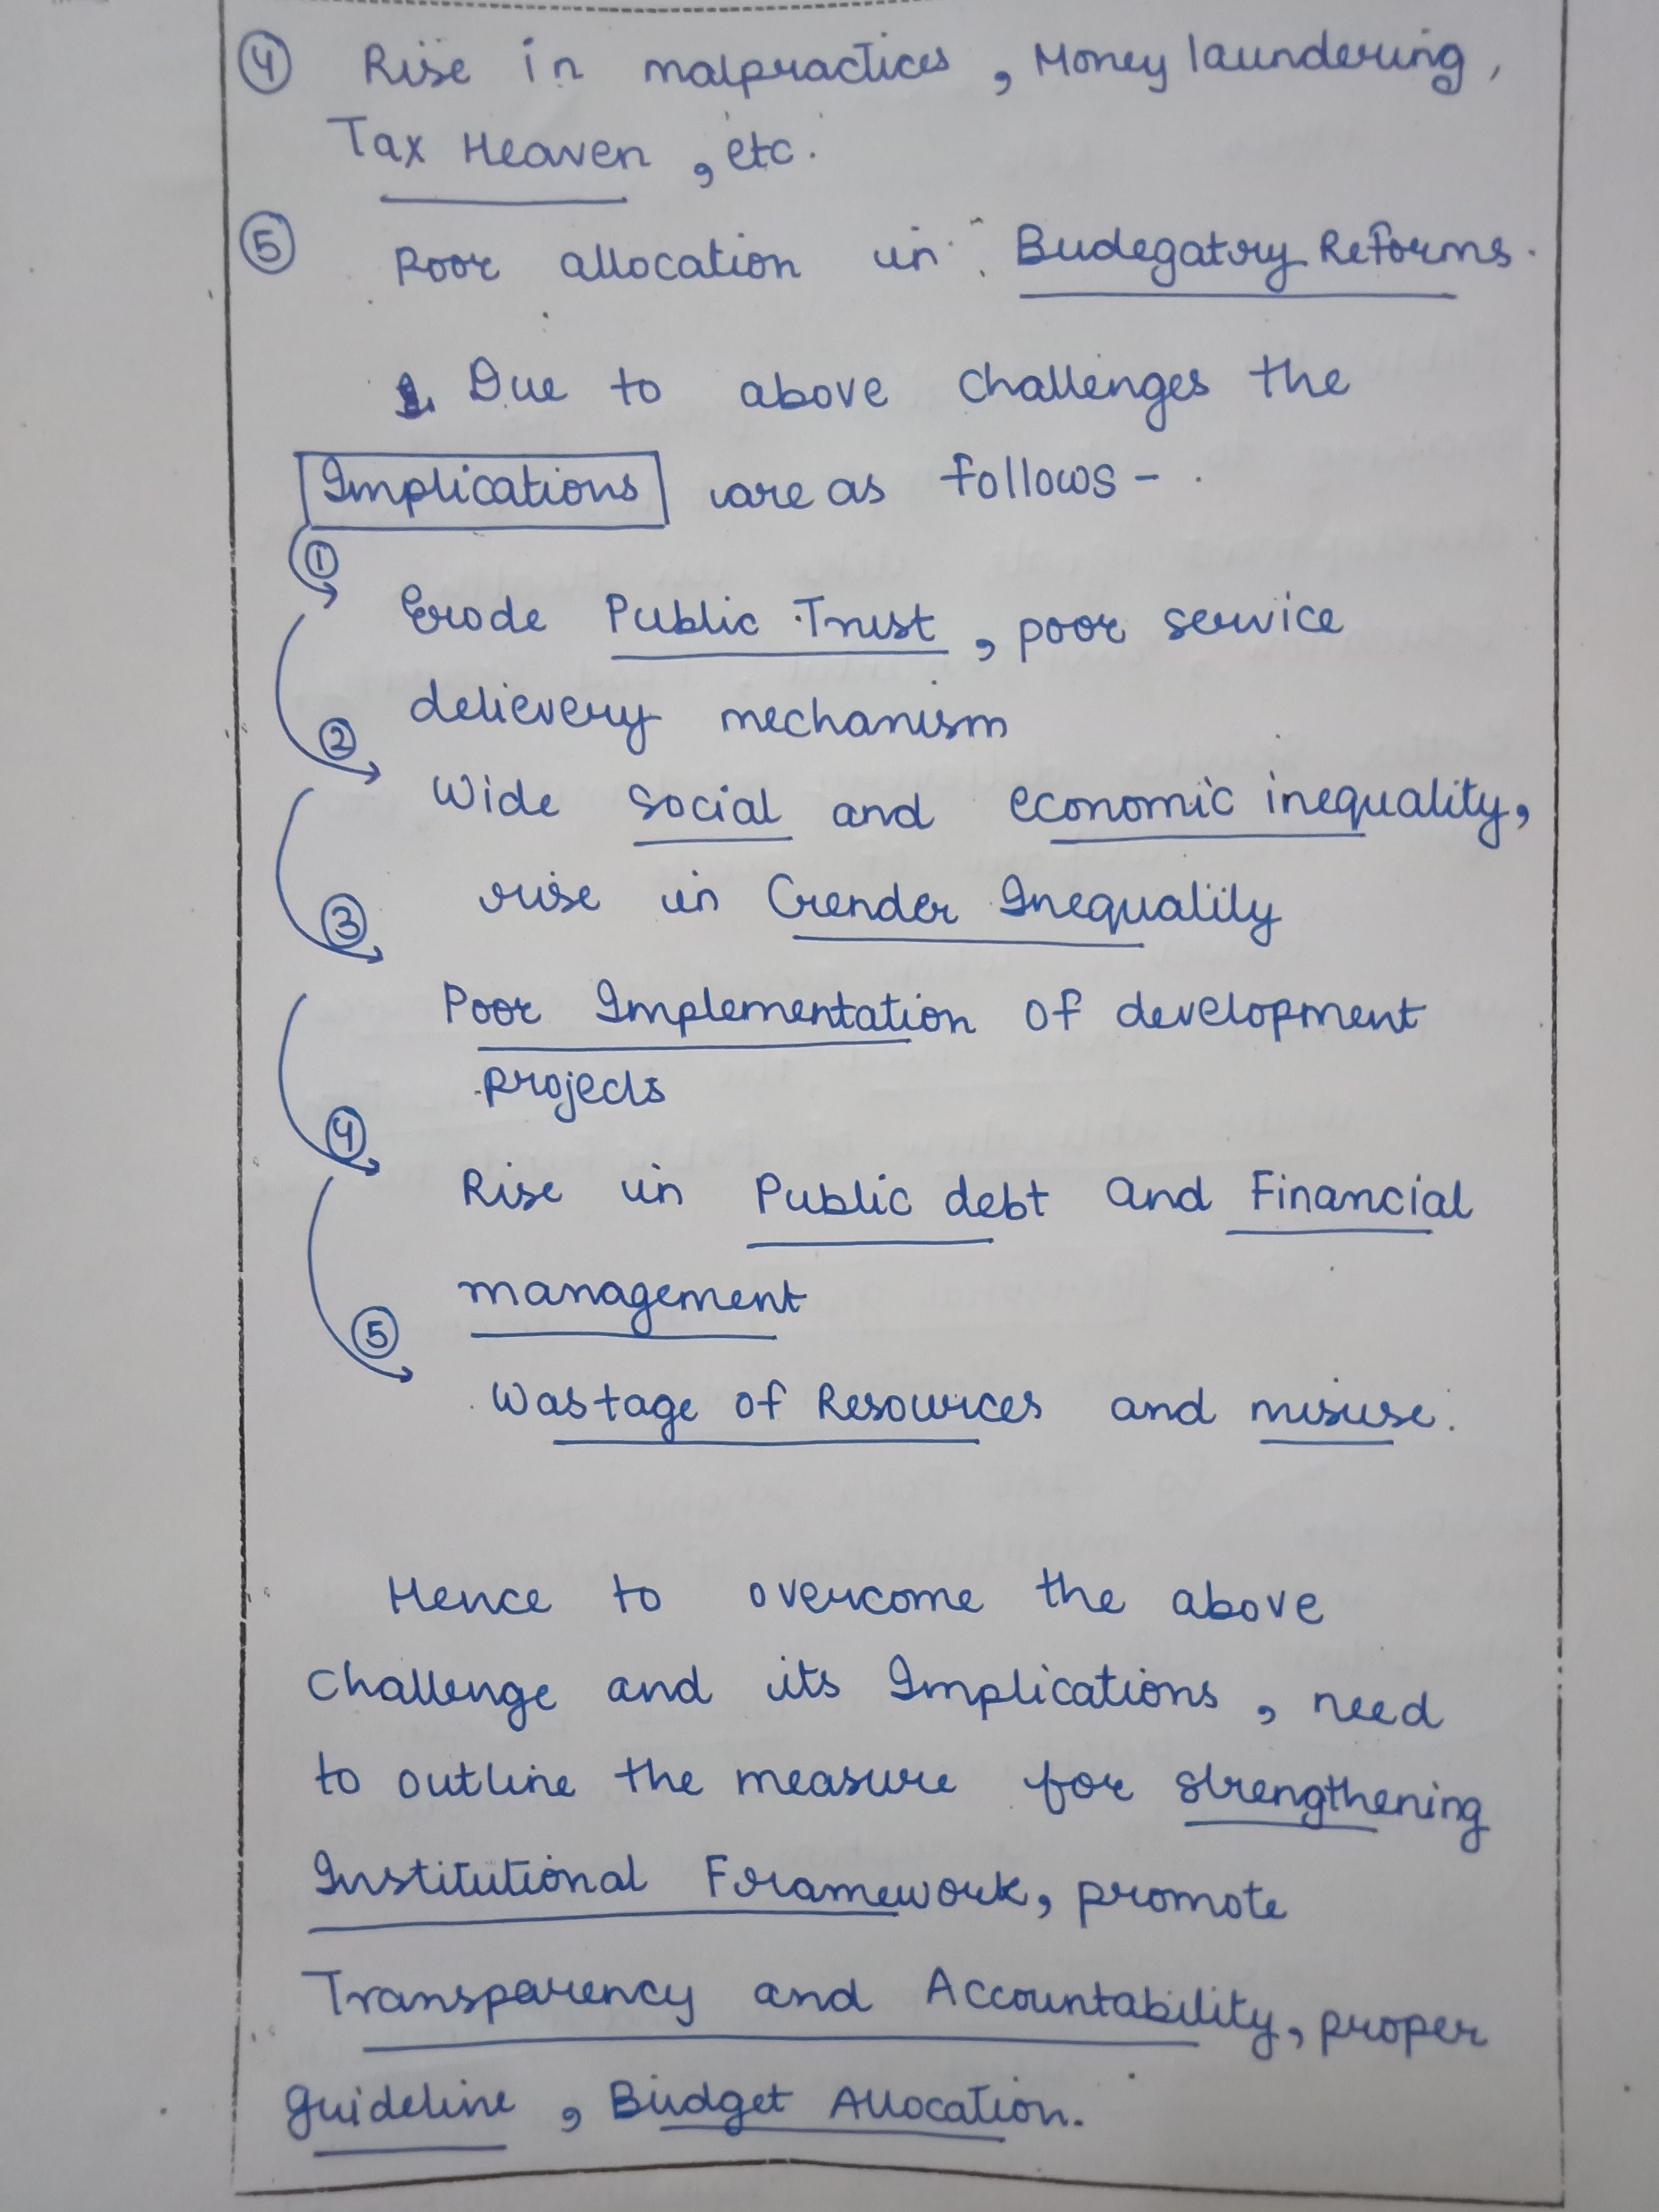 ④ Rise in malpractices, Money laundering,
Tax Heaven, etc.
⑤ Poor allocation in Budegatory Reforms.
Due to above challenges the
Implications are as follows -
① Erode Public Trust, poor service
delievery mechanism
② Wide social and economic inequality,
rise in Gender Inequality
③ Poor Implementation of development
projects
④ Rise in Public debt and Financial
management
⑤ Wastage of Resources and misuse.
Hence to overcome the above
challenge and its Implications, need
to outline the measure for strengthening
Institutional Framework, promote
Transparency and Accountability, proper
guideline, Budget Allocation.